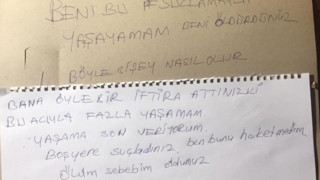 BENİ BU
YAŞAYAMAM BENİ ÖLDÜRDÜNÜZ
BÖYLE BİŞEY NASIL OLUR
BANA ÖYLE BİR İFTİRA ATTINIZKİ
BU ACIYLA FAZLA YAŞAMAM
YAŞAMA SON VERİYORUM.
Boşyere suçladınız ben bunu haketmedim
ölüm sebebim oldunuz